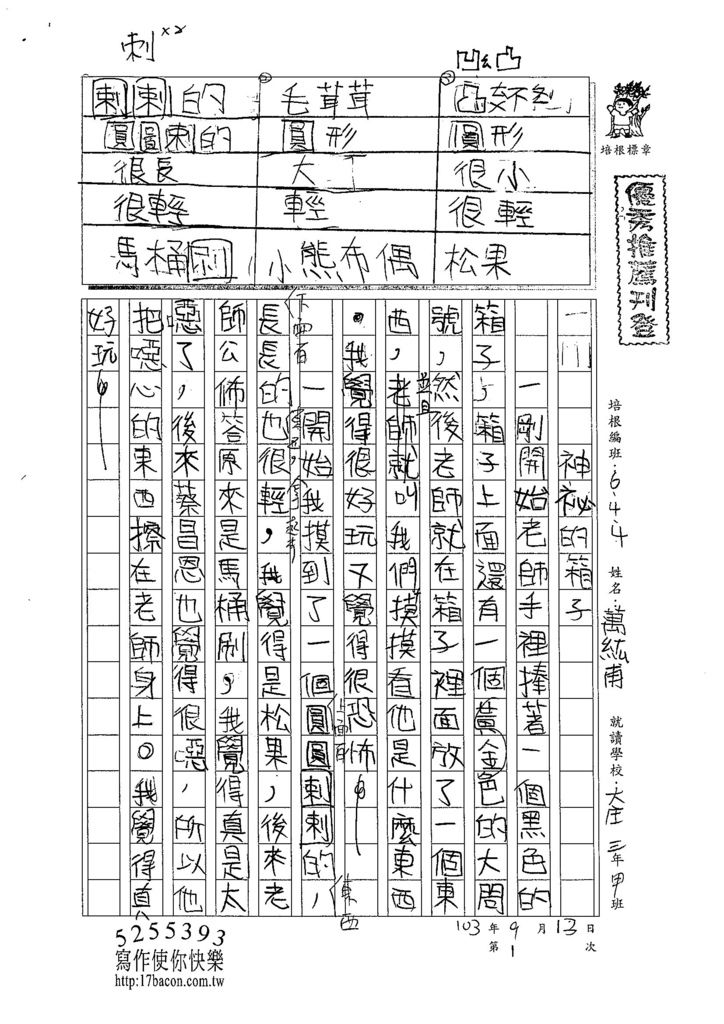 刺 ×2
凹凸
刺刺的 毛茸茸 凸
圓圓刺的 圓形 圓形
很長 大 很小
很輕 輕 很輕
馬桶刷 小熊布偶 松果
培根標章
優秀推薦刊登
培根編班：6-4-4 姓名：萬紘甫 就讀學校：大庄三年甲班
103年9月13日
第1次
神祕的箱子
一剛開始老師手裡捧著一個黑色的
箱子，箱子上面還有一個黃金色的大問
號，然後老師就在箱子裡面放了一個東
西，並且老師就叫我們摸摸看他是什麼東西
。我覺得很好玩又覺得很恐怖。
一開始我摸到了一個上面有圓圓刺刺的，東西
下面有長長的也很輕，我覺得是松果，後來老
師公佈答原來是馬桶刷，我覺得真是太
噁了，後來蔡昌恩也覺得很噁，所以他
把噁心的東西擦在老師身上。我覺得真
好玩。
5255393
寫作使你快樂
http:17bacon.com.tw